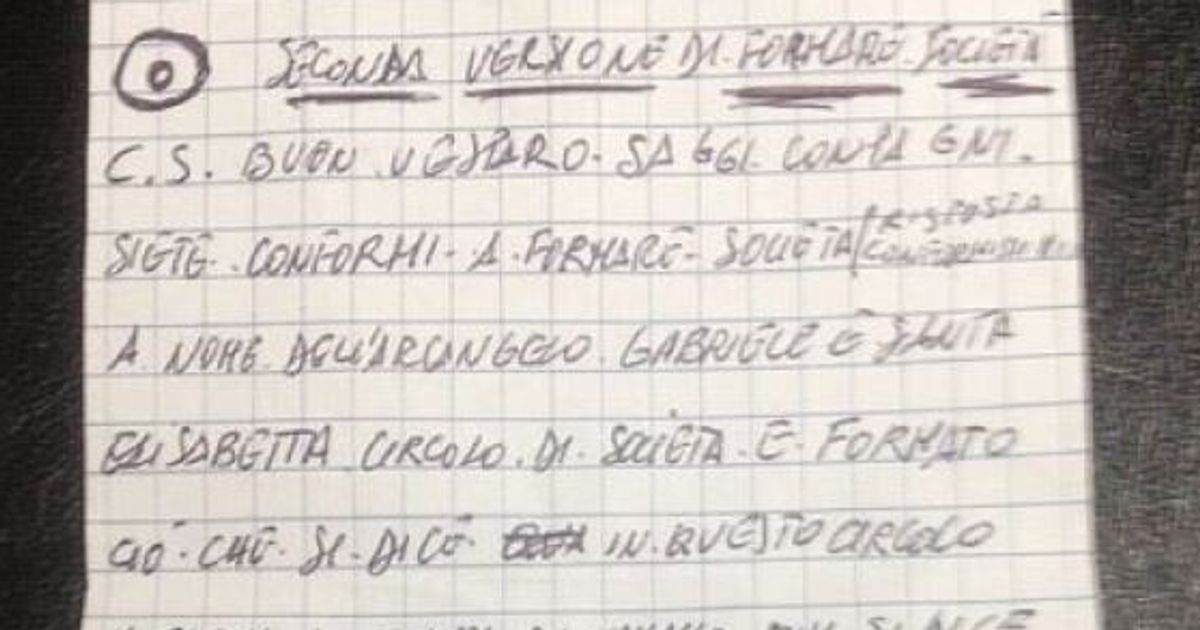 SECONDA VERSIONE DI FORMARE SOCIETÀ
C.S. BUON VESPERO. SAGGI COMPAGNI.
SIETE. CONFORMI. A. FORMARE. SOCIETÀ/ RISPOSTA
A NOME DELL'ARCANGELO GABRIELE E SANTA
ELISABETTA CIRCOLO. DI. SOCIETÀ. E. FORMATO
CIÒ. CHE. SI. DICE IN. QUESTO CIRCOLO